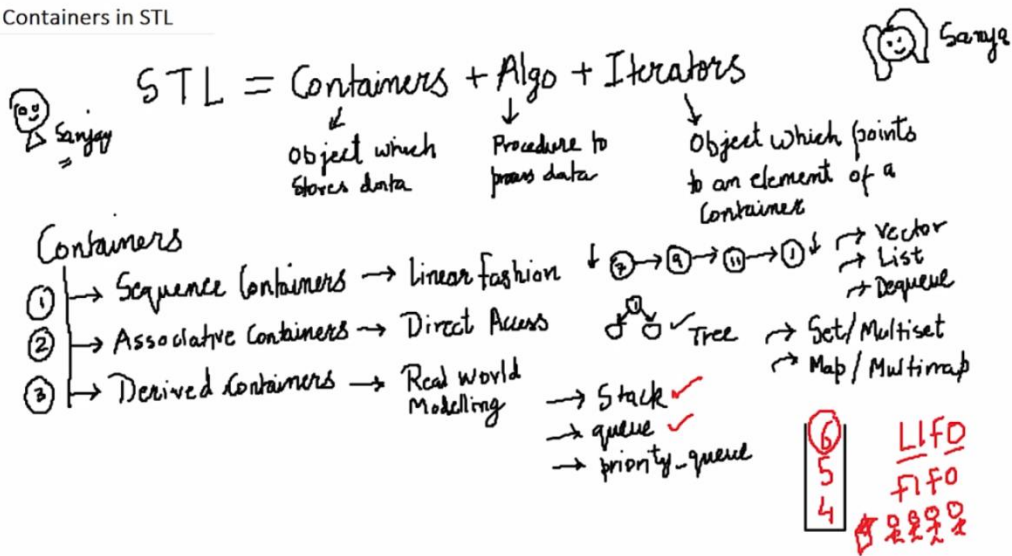 Containers in STL
STL = Containers + Algo + Iterators
Sanjay
Sanya
Object which
stores data
Procedure to
process data
Object which points
to an element of a
Container
Containers
1 → Sequence Containers → Linear fashion
7 → 9 → 11 → 1
→ Vector
→ List
→ Dequeue
2 → Associative Containers → Direct Access
Tree
→ Set/Multiset
→ Map/Multimap
3 → Derived Containers → Real World
Modelling
→ Stack
→ queue
→ priority-queue
6
5
4
LIFO
FIFO